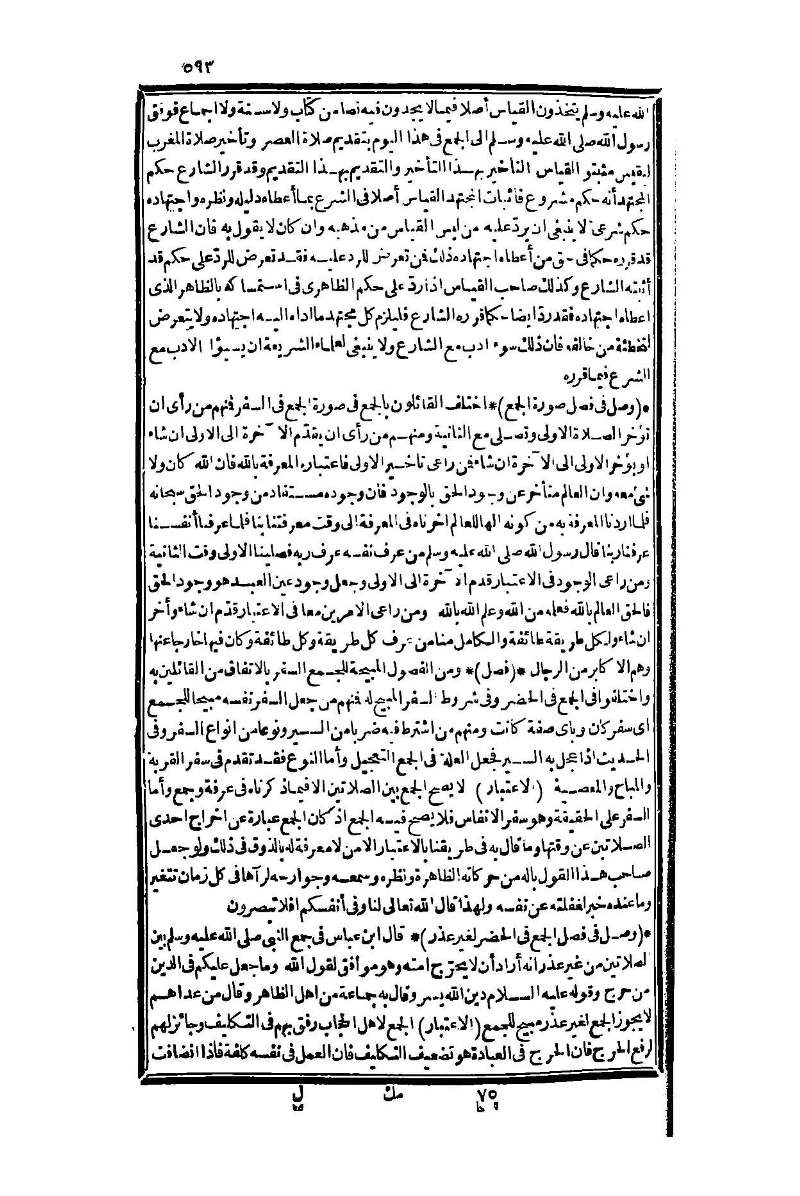 ٥٩٣
الله عليه وسلم يتخذون القياس أصلا فيما لا يجدون فيه نصا من كتاب ولا سنة ولا اجماع فوفق
رسول الله صلى الله عليه وسلم الى الجمع فى هذا اليوم بتقديم صلاة العصر وتأخير صلاة المغرب
ليقيس مثبتو القياس التأخير بهذا التأخير والتقديم بهذا التقديم وقد قرر الشارع حكم
المجتهد أنه حكم مشروع فاثبات المجتهد القياس أصلا فى الشرع بما أعطاه دليله ونظره واجتهاده
حكم شرعى لا ينبغى ان يرد عليه من ليس القياس من مذهبه وان كان لا يقول به فان الشارع
قد قرره حكما فى حق من أعطاه اجتهاده ذلك فمن تعرض للرد عليه فقد تعرض للرد على حكم قد
أثبته الشارع وكذلك صاحب القياس اذا رد على حكم الظاهرى فى استمساكه بالظاهر الذى
اعطاه اجتهاده فقد رد ايضا حكما قرره الشارع فليلزم كل مجتهد ما اداه اليه اجتهاده ولا يتعرض
لتخطئة من خالفه فان ذلك سوء ادب مع الشارع ولا ينبغى لعلماء الشريعة ان يسيؤا الادب مع
الشرع فيما قرره
*(وصل فى فصل صورة الجمع)* اختلف القائلون بالجمع فى صورة الجمع فى السفر فمنهم من رأى ان
تؤخر الصلاة الاولى وتصلى مع الثانية ومنهم من رأى ان يقدم الآخرة الى الاولى ان شاء
او يؤخر الاولى الى الآخرة ان شاء فمن راعى تأخير الاولى فاعتباره المعرفة بالله فان الله كان ولا
شئ معه وان العالم متأخر عن وجود الحق بالوجود فان وجوده مستفاد من وجود الحق سبحانه
فلما اردنا المعرفة به من كونه الها للعالم اخرناه فى المعرفة الى وقت معرفتنا بنا فلما عرفنا أنفسنا
عرفنا ربنا قال رسول الله صلى الله عليه وسلم من عرف نفسه عرف ربه فصلينا الاولى وقت الثانية
ومن راعى الوجود فى الاعتبار قدم الآخرة الى الاولى وجعل وجود عين العبد هو وجود الحق
فالحق العالم بالله فعله من الله وعلم الله بالله ومن راعى الامرين معا فى الاعتبار قدم ان شاء وأخر
ان شاء ولكل طريقة طائفة والكامل منا من عرف كل طريقة وكل طائفة وكان فيها خارجا عنها
وهم الاكابر من الرجال *(فصل)* ومن الفصول المبيحة للجمع السفر بالاتفاق من القائلين به
واختلفوا فى الجمع فى الحضر وفى شروط السفر المبيح له فمنهم من جعل السفر نفسه مبيحا للجمع
اى سفر كان وبأى صفة كانت ومنهم من اشترط فيه ضربا من السير ونوعا من انواع السفر وفى
الحديث اذا عجل به السير فجعل العلة فى الجمع التعجيل وأما النوع فقد تقدم فى سفر القربة
والمباح والمعصية (الاعتبار) لا يصح الجمع بين الصلاتين الا فيما ذكرناه فى عرفة وجمع وأما
السفر على الحقيقة وهو سفر الانفاس فلا يصح فيه الجمع اذ كان الجمع عبارة عن اخراج احدى
الصلاتين عن وقتها وما قال به فى طريقنا بالاعتبار الا من لا معرفة له بالذوق فى ذلك ولو جعل
صاحب هذا القول باله من حركاته الظاهرة ونظره وسمعه وجوارحه لرآها فى كل زمان تتغير
وما عنده خبر لغفلته عن نفسه ولهذا قال الله تعالى لنا وفى أنفسكم افلا تبصرون
*(وصل فى فصل الجمع فى الحضر لغير عذر)* قال ابن عباس فى جمع النبى صلى الله عليه وسلم بين
الصلاتين من غير عذر انه أراد أن لا يحرج امته وهو موافق لقول الله وما جعل عليكم فى الدين
من حرج وقوله عليه السلام دين الله يسر وقال به جماعة من اهل الظاهر وقال من عداهم
لا يجوز الجمع لغير عذر مبيح للجمع (الاعتبار) الجمع لاهل الحجاب رفق بهم فى التكليف وجائز لهم
لرفع الحرج فان الحرج فى العبادة هو تضعيف التكاليف فان العمل فى نفسه كلفة فاذا انضافت
٧٥ مك ل